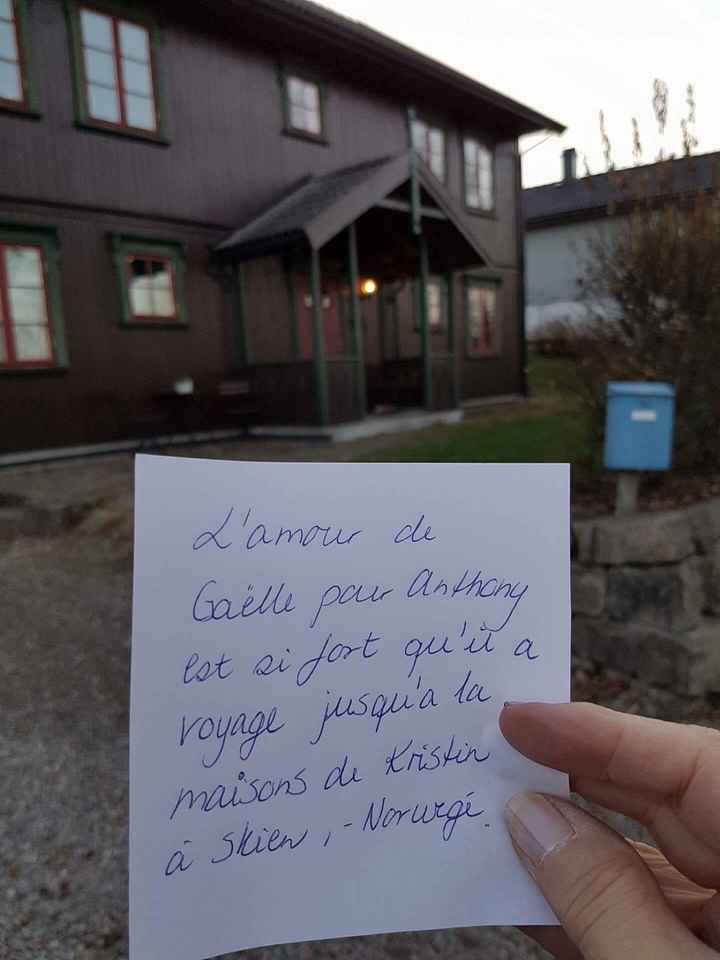 L'amour de
Gaëlle pour Anthony
est si fort qu'il a
voyage jusqu'a la
maisons de Kristin
à Skien, - Norurgé.